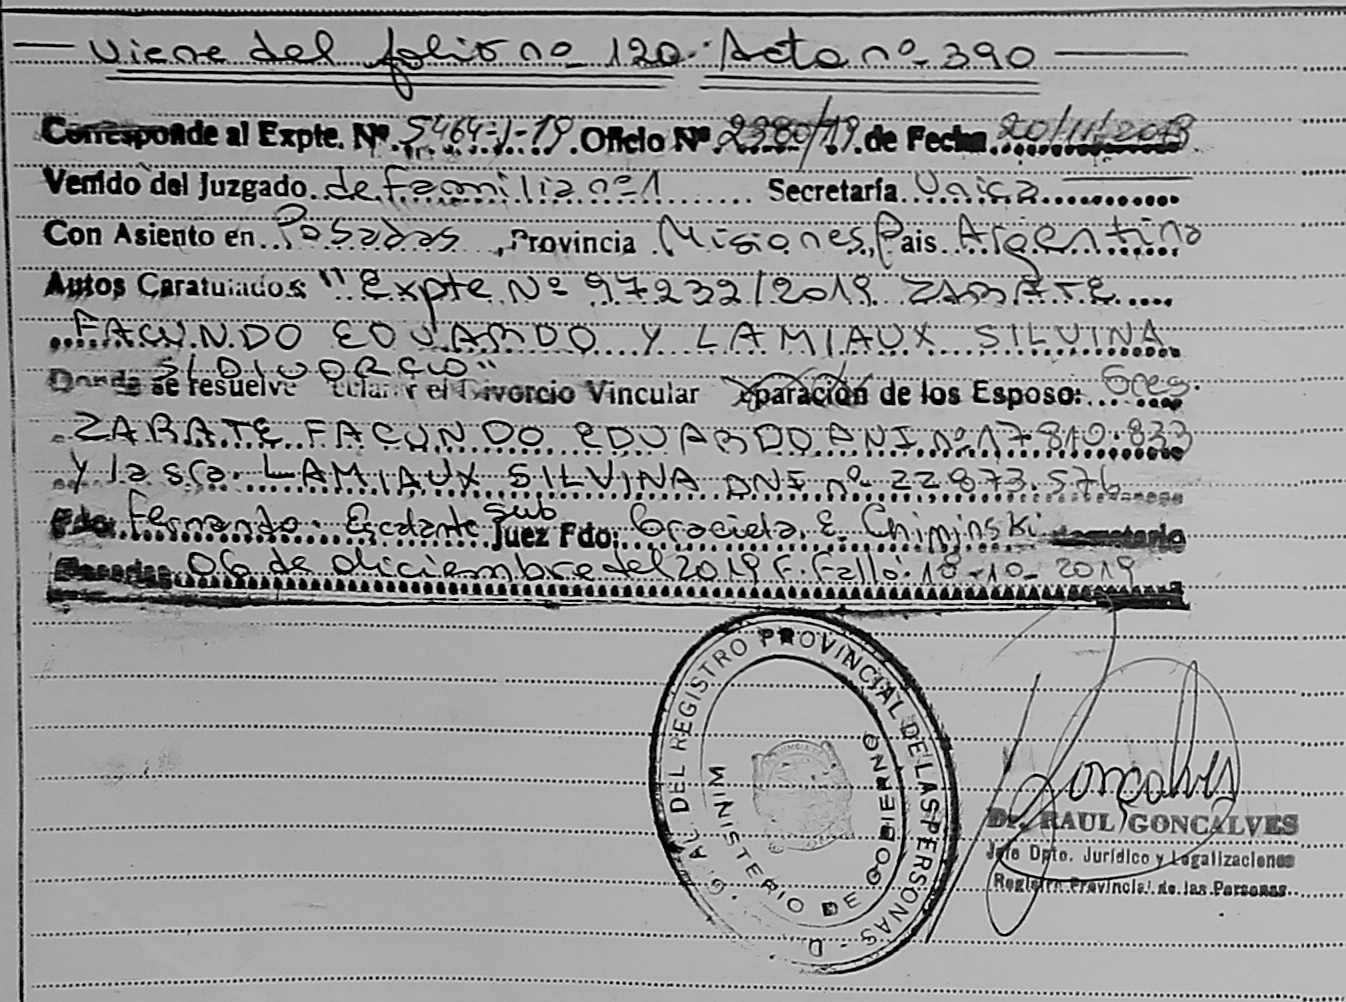 Viene del folio nº 120. Acta nº 390
Corresponde al Expte. Nº 5464-J-19 Oficio Nº 2380/19 de Fecha 20/11/2019
Venido del Juzgado de familia nº 1 Secretaría Unica
Con Asiento en Posadas, Provincia Misiones, Pais Argentina
Autos Caratulados "Expte Nº 97232/2019 ZARATE
FACUNDO EDUARDO Y LAMIAUX SILVINA
S/DIVORCIO"
Donde se resuelve declarar el Divorcio Vincular Separación de los Esposo: Sres.
ZARATE FACUNDO EDUARDO DNI nº 17.810.833
y la sra. LAMIAUX SILVINA DNI nº 22.873.576
Fdo: Fernando Escalante Sub Juez Fdo: Graciela E. Chiminski Secretario
Posadas, 06 de diciembre del 2019 F. Fallo: 18-10-2019
D. G. AL. DEL REGISTRO PROVINCIAL DE LAS PERSONAS
MINISTERIO DE GOBIERNO
Gonçalves
Dr. RAUL GONCALVES
Jefe Dpto. Jurídico y Legalizaciones
Registro Provincial de las Personas